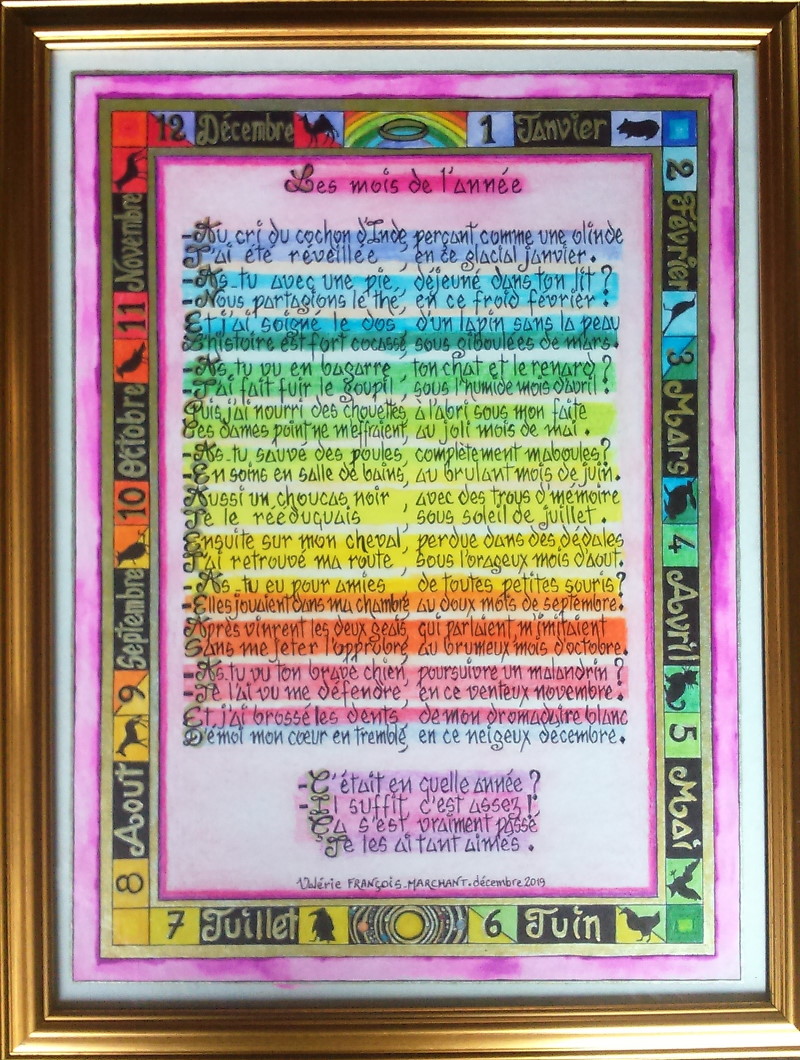 12 Décembre
1 Janvier
2 Février
3 Mars
4 Avril
5 Mai
6 Juin
7 Juillet
8 Aout
9 Septembre
10 Octobre
11 Novembre
Les mois de l'année
-Au cri du cochon d'Inde, perçant comme une olinde
J'ai été réveillée, en ce glacial janvier.
-As-tu avec une pie, déjeuné dans ton lit ?
-Nous partagions le thé, en ce froid février !
Et j'ai soigné le dos, d'un lapin sans la peau
L'histoire est fort cocasse, sous giboulées de mars.
-As-tu vu en bagarre, ton chat et le renard ?
-J'ai fait fuir le goupil, sous l'humide mois d'avril !
Puis j'ai nourri des chouettes, à l'abri sous mon faîte
Ces dames point ne m'effraient, au joli mois de mai.
-As-tu sauvé des poules, complètement maboules ?
-En soins en salle de bains, au brulant mois de juin.
Aussi un choucas noir, avec des trous d'mémoire
Je le rééduquais, sous soleil de juillet.
Ensuite sur mon cheval, perdue dans des dédales
J'ai retrouvé ma route, sous l'orageux mois d'aout.
-As-tu eu pour amies, de toutes petites souris ?
-Elles jouaient dans ma chambre, au doux mois de septembre.
Après vinrent les deux geais, qui parlaient, m'imitaient
Sans me jeter l'opprobre, au brumeux mois d'octobre.
-As-tu vu ton brave chien, poursuivre un malandrin ?
-Je l'ai vu me défendre, en ce venteux novembre.
Et, j'ai brossé les dents, de mon dromadaire blanc
D'émoi mon cœur en tremble, en ce neigeux décembre.
-C'était en quelle année ?
-Il suffit, c'est assez !
Ça s'est vraiment passé
Je les ai tant aimés.
Valérie FRANÇOIS-MARCHANT. décembre 2019